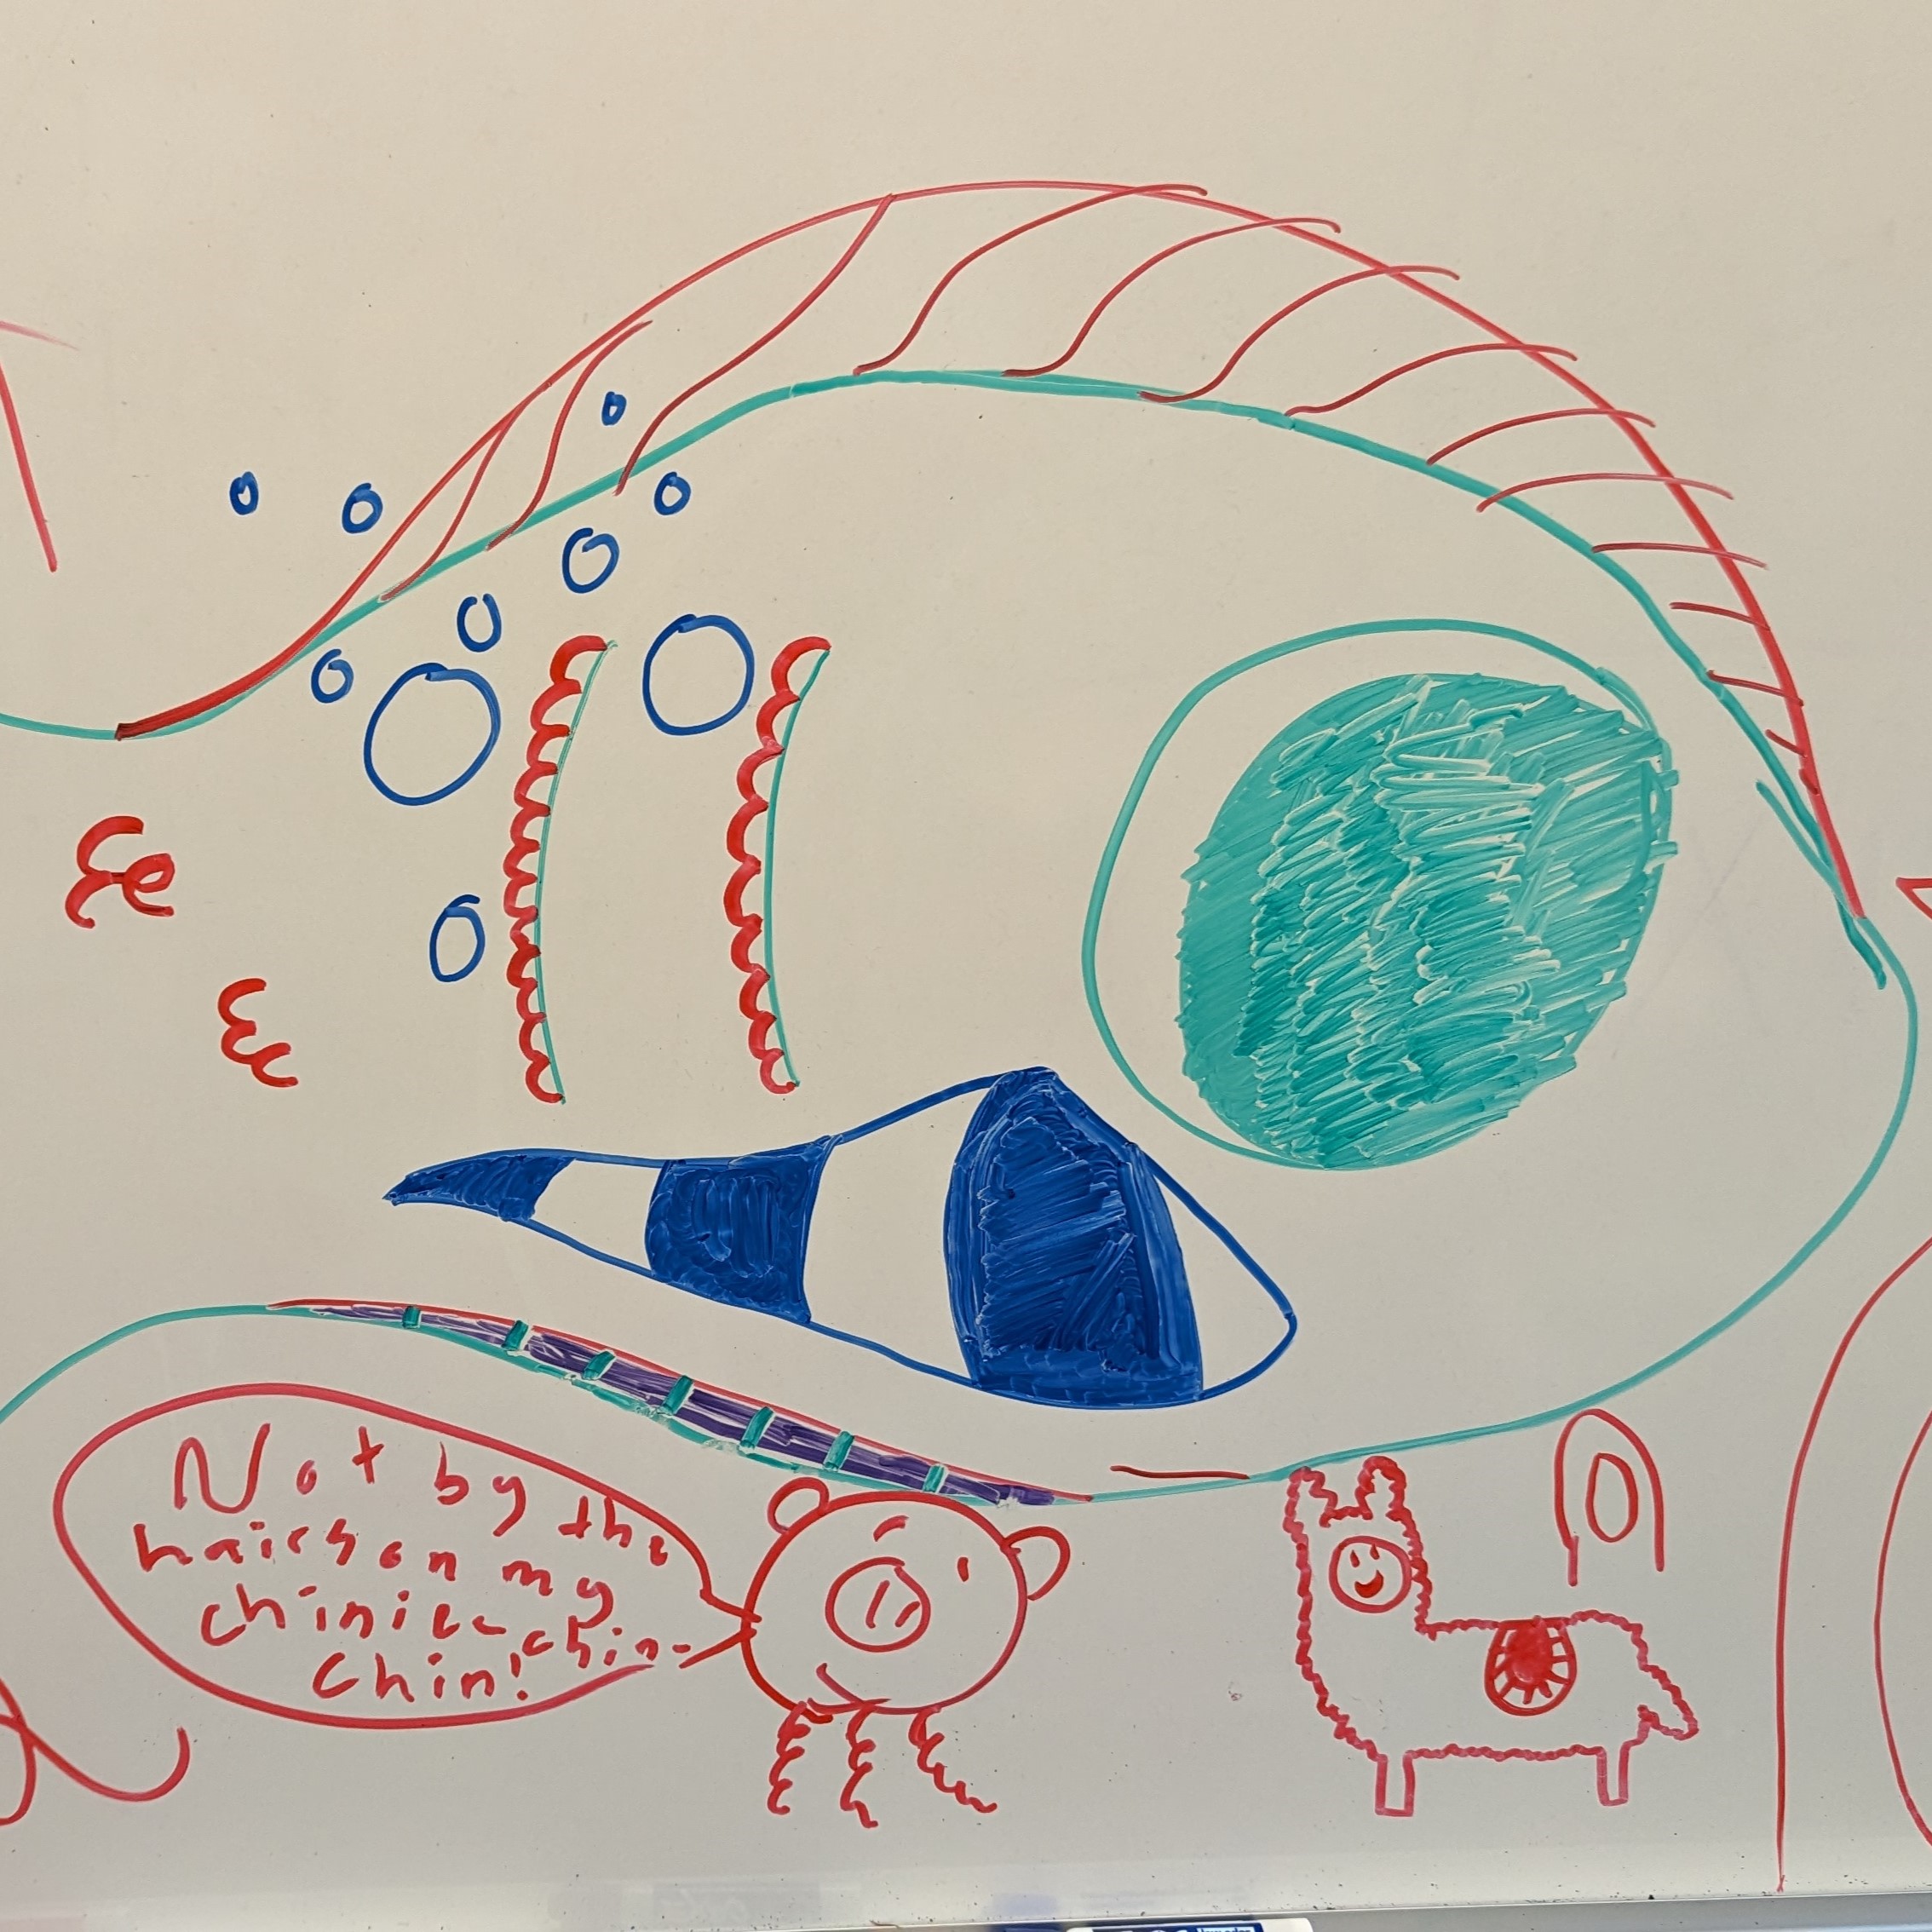 Not by the
hairs on my
chinie-chin-
Chin!